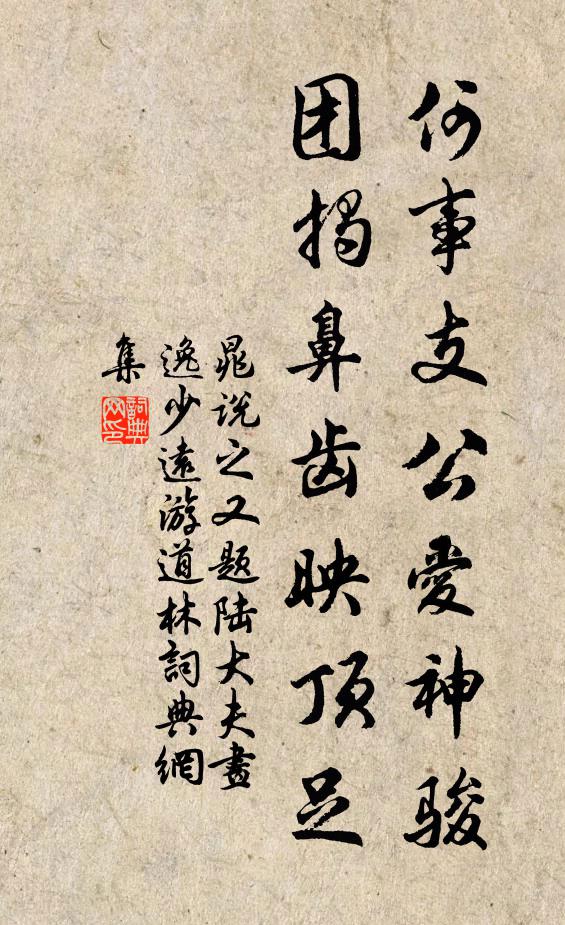 何事支公愛神骏
团揭鼻齿映顶足
晁说之又题陆大夫畫
逸少遠游道林詞典網
集
詞典网印